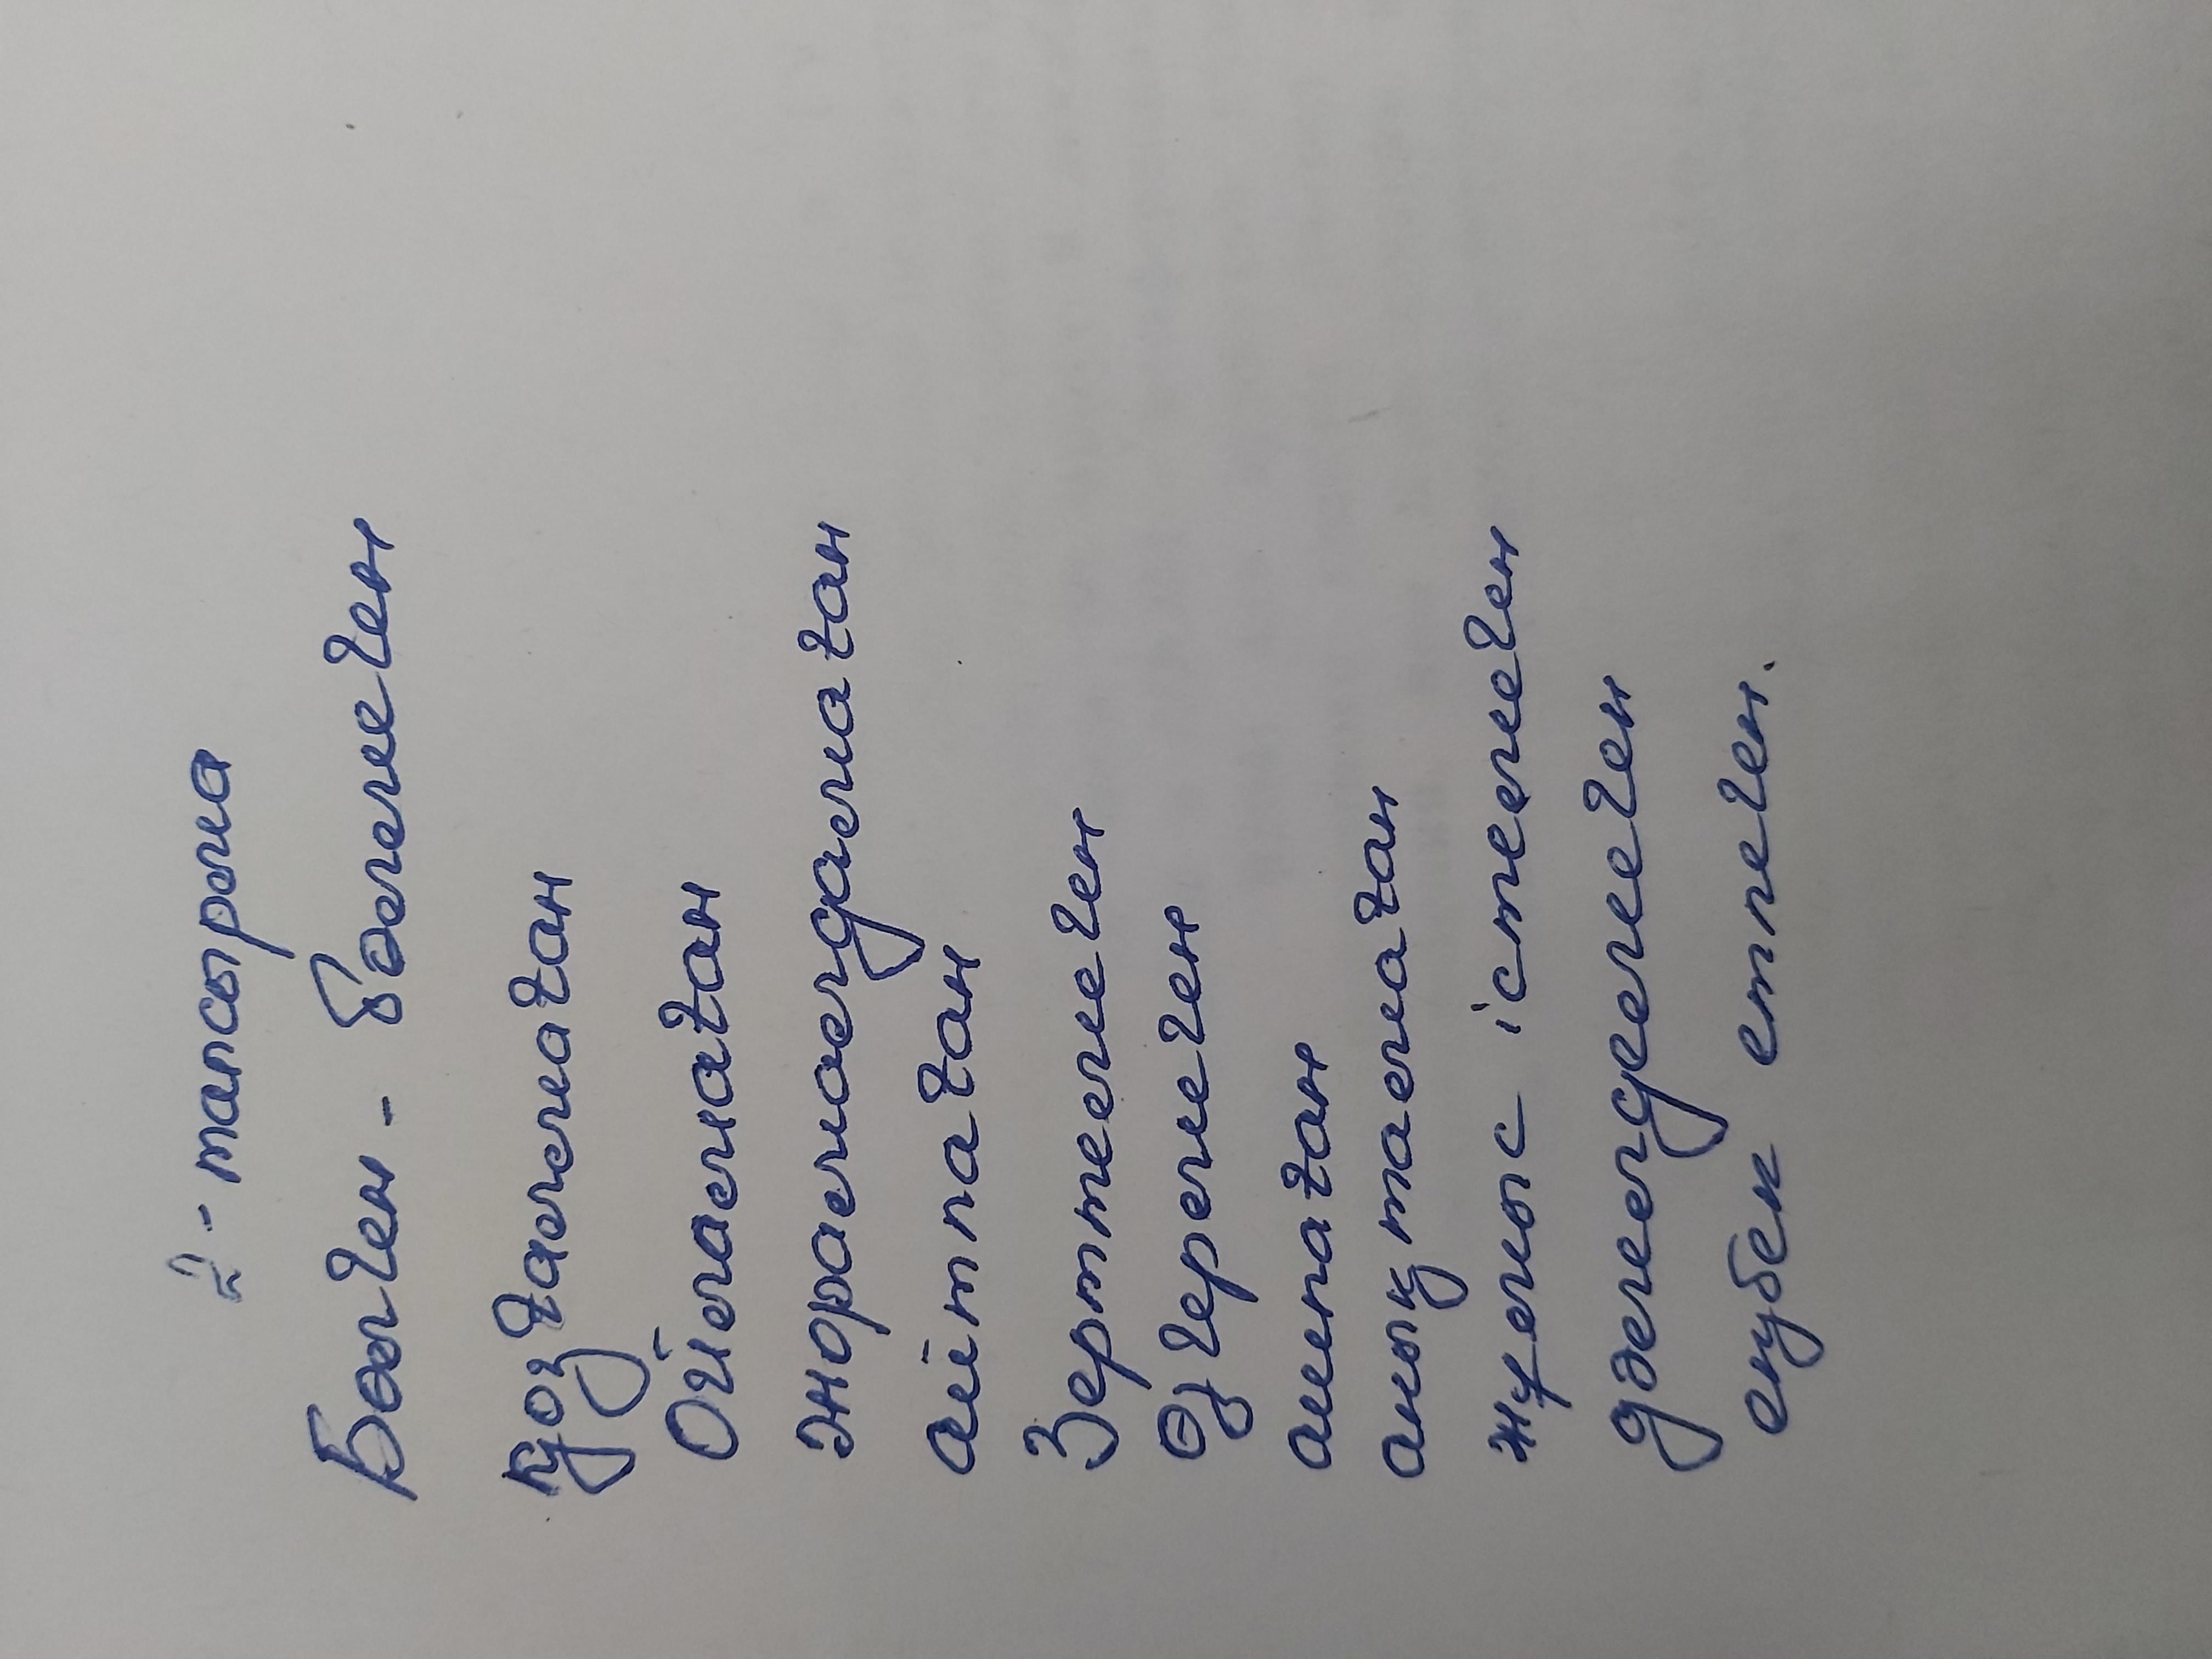 2 - тапсырма
Бөлген - бөлмеген
қозғалмаған
Ойламаған
жорамолдамаған
айтпаған
Зерттемеген
Өзгермеген
ашпаған
анықтамаған
жұмыс істемеген
дәлелдемеген
еңбек етпеген.